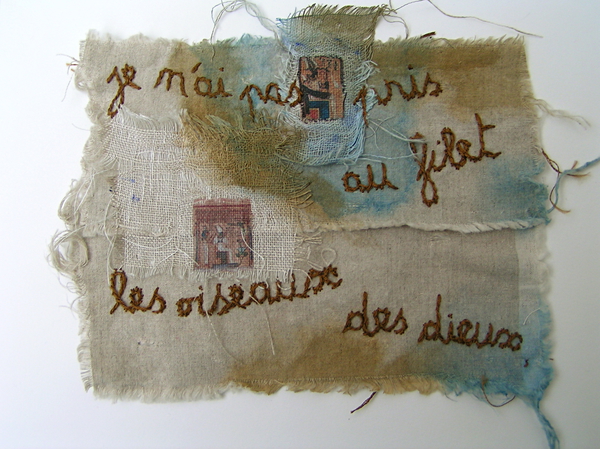 je n'ai pas pris
au filet
les oiseaux
des dieux